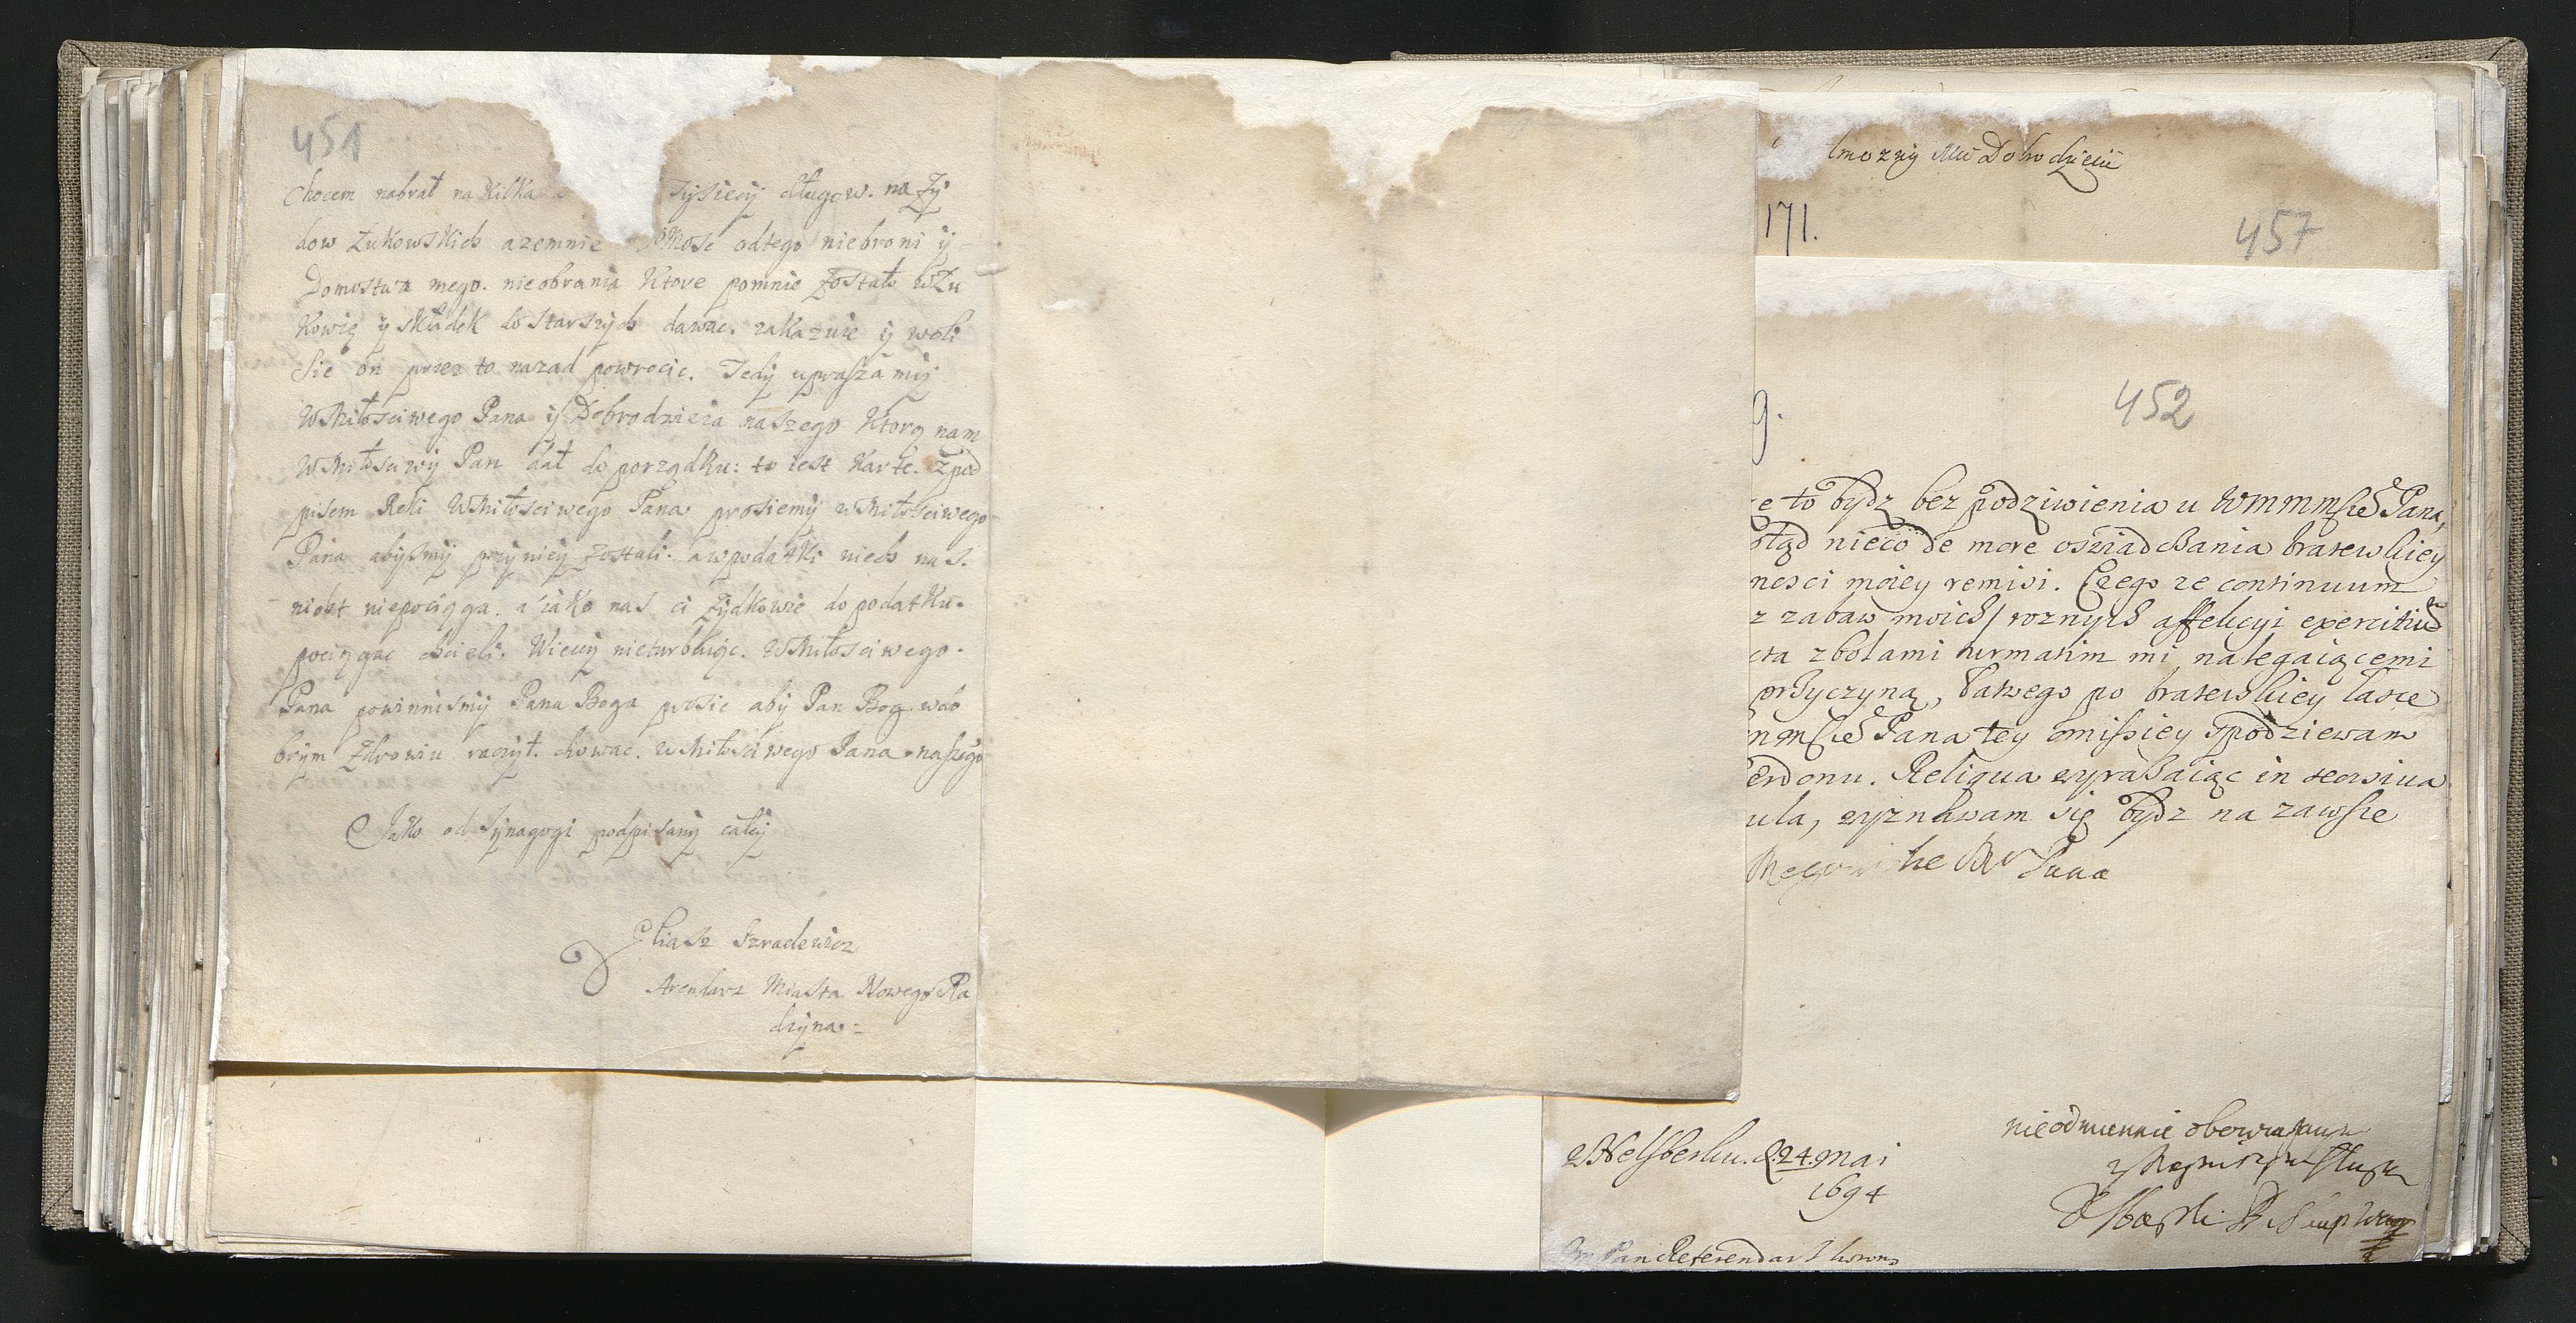 451
Chocem nabrał na Kilka Tysięcy długow. na Zy
dow Żukowskich azemnie Jmosc odtego niebroni ÿ
Domostwa mego. nieobrania Ktore pomnie zostało wŻu
Kowię ÿ składek do starszÿch dawac. zakazuie ÿ woli
Sie on przez to nazad powrocic. Tedÿ uprasza mÿ
WMiłosciwego Pana ÿ Dobrodzieia naszego Ktorą nam
WMiłosciwÿ Pan dał do porządku: to iest Karte. Zpod
pisem Reki WMiłosciwego Pana prosiemÿ wMiłosciwego
Pana abÿsmÿ przÿnieÿ zostali. awpodatki niech nas.
nicht niepociąga. a iako nas ci Zÿdkowie do podatku.
pociągac chcieli. Wiecÿ nieturbuiąc. WMiłosciwego.
Pana powinnismÿ Pana Boga prosic abÿ Pan Bog wdo
brÿm Zdrowiu raczÿł. chowac. wMiłosciwego Pana naszego
Jako od Sÿnagogi podpisanÿ całeÿ
Eliasz Izraelewicz
Arendarz Miasta Nowego Ra
dzÿna
lmoznÿ Mci Dobrodzieiu
171.
457
9.
452
e to bydz bez podziwienia u WmmmsieO Pana,
stąd nieco de more oswiadchania braterskiey
nosci moiey remisi. Czego ze continuum
z zabaw moich/ roznych affekcyi exercitiu
cta zbolami nalegaiącemi
przyczyną, Łatwego po braterskiey łasce
Pana tey omissiey spodziewam
erdonu. Reliqua wyrażaiąc in
ula, wyznawam się bydz na zawsze
Pana
zHelsberku. D. 24. Mai
1694
nieodmiennie obowiązany
Sługa
Jm Pan Referendarz Koronny